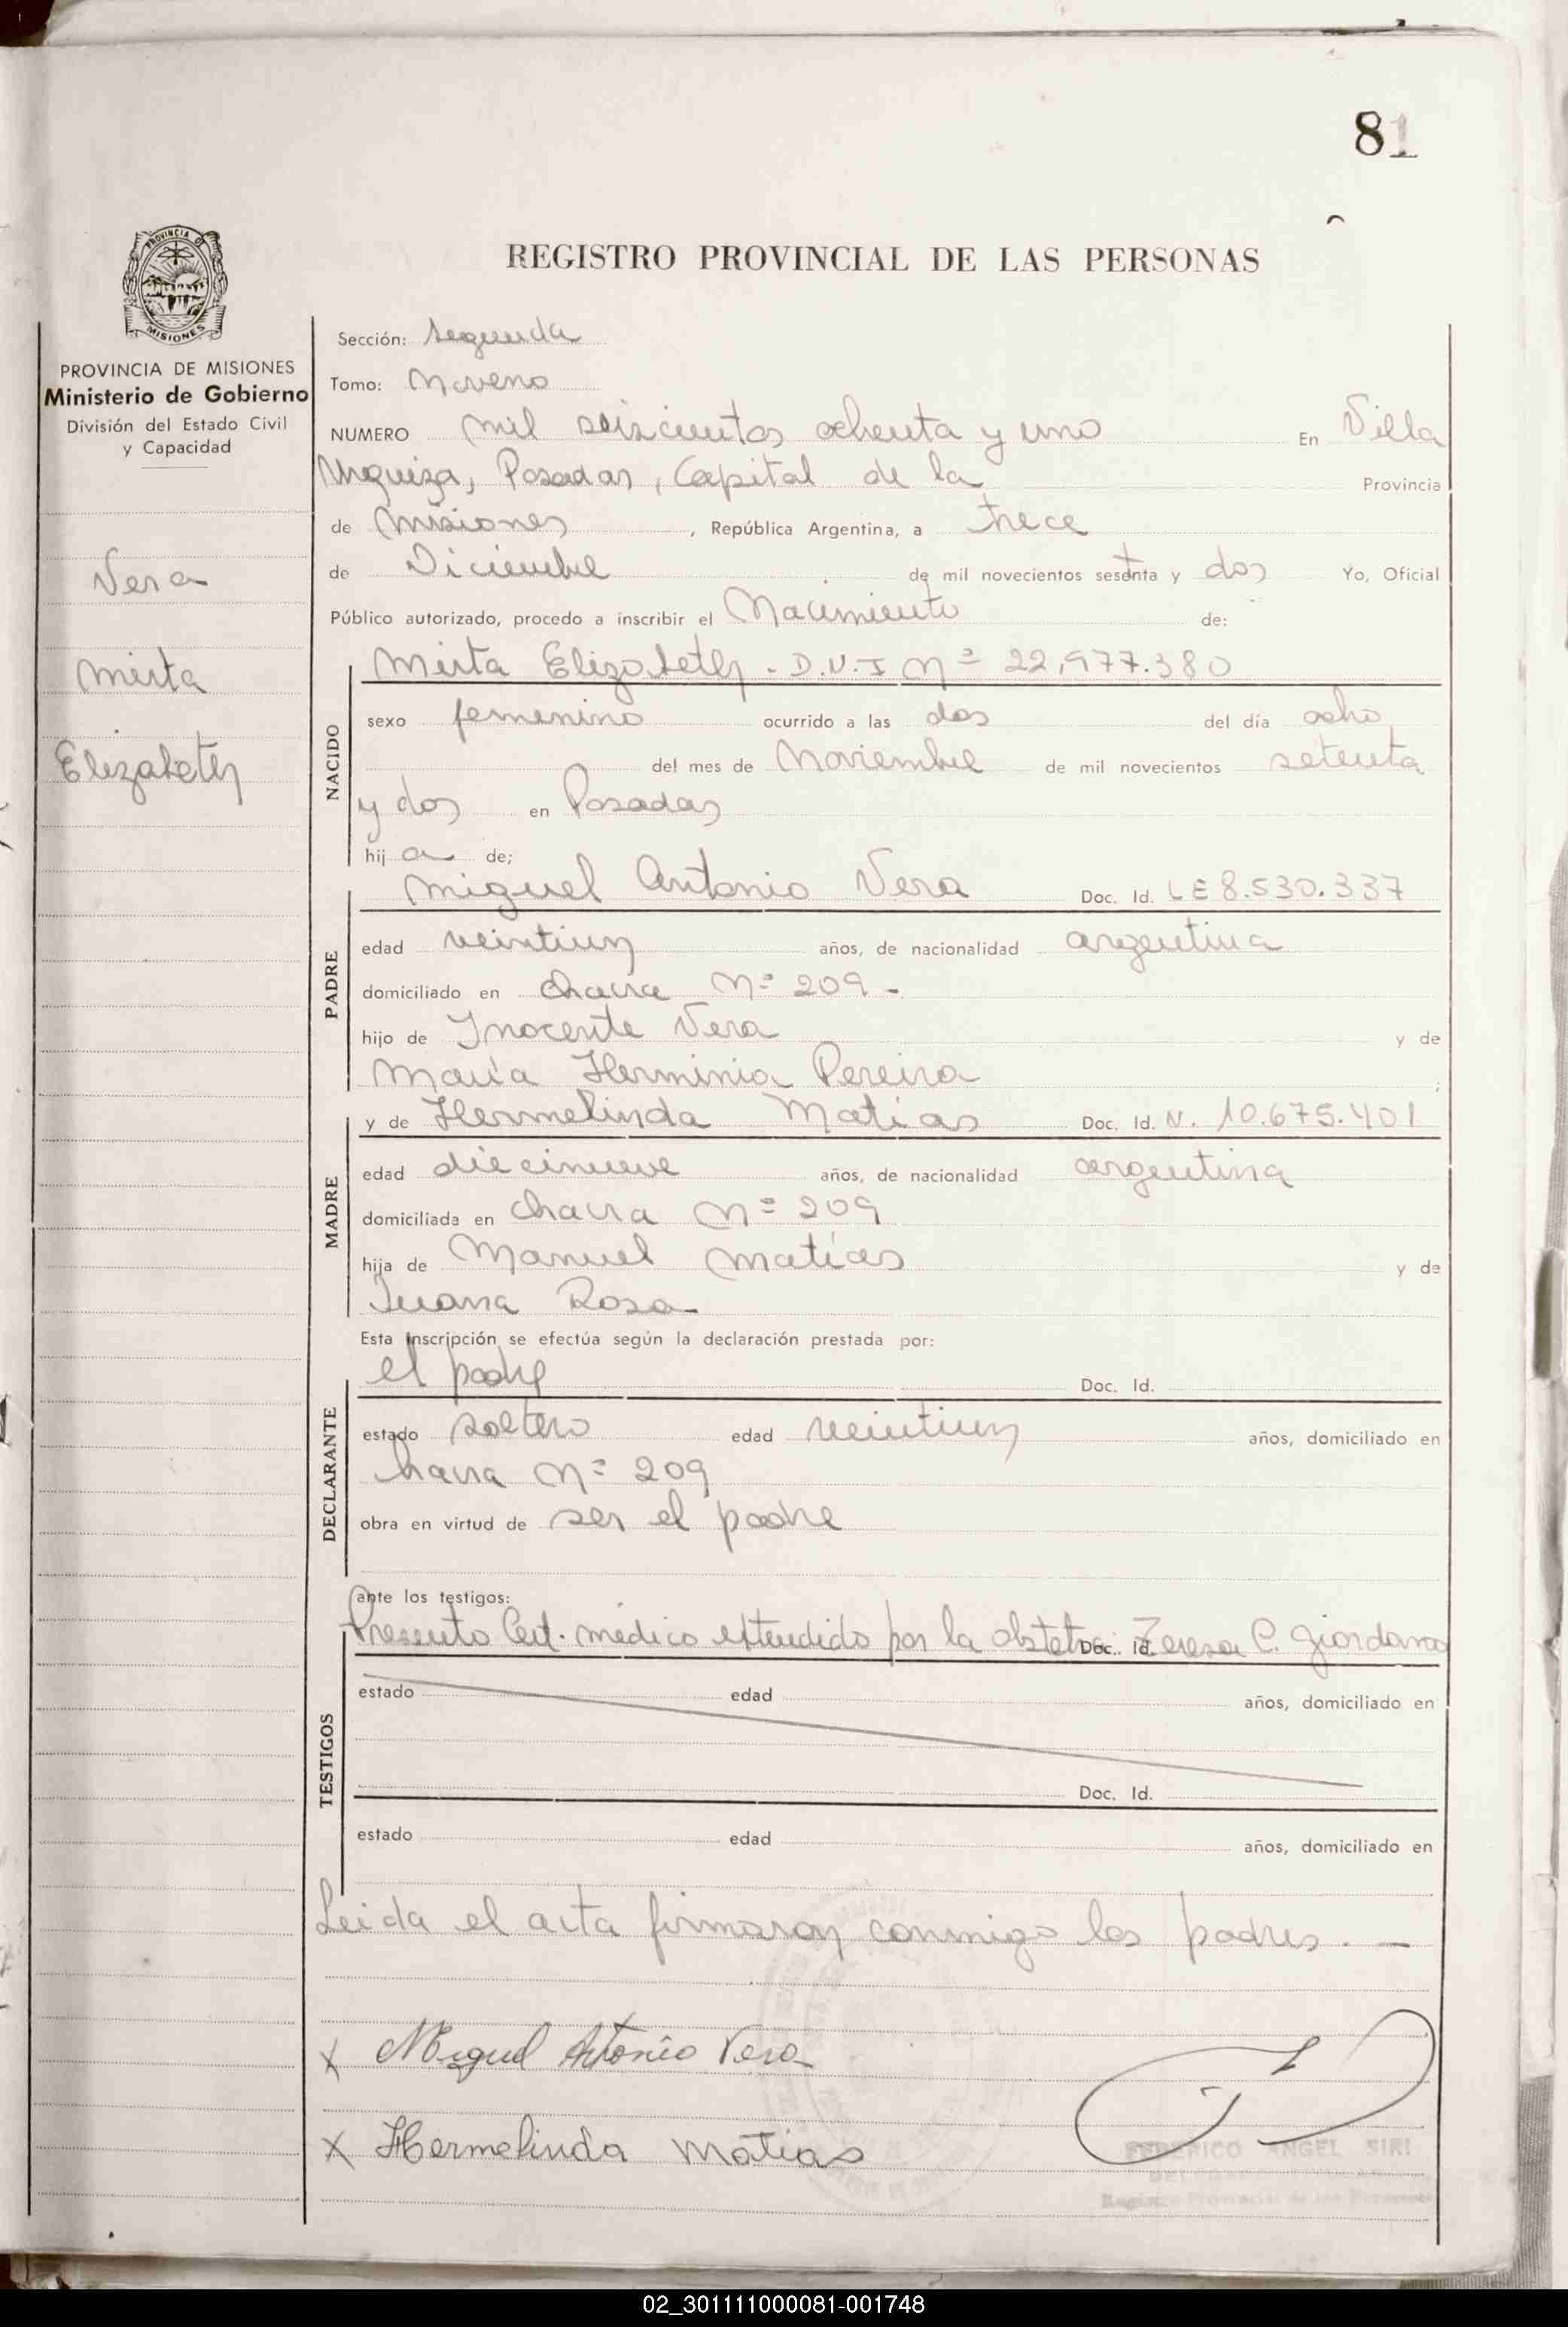 81
REGISTRO PROVINCIAL DE LAS PERSONAS
PROVINCIA DE MISIONES
MISIONES
PROVINCIA DE MISIONES
Ministerio de Gobierno
División del Estado Civil
y Capacidad
Vera
Mirta
Elizabeth
Sección: Segunda
Tomo: Noveno
NUMERO mil seiscientos ochenta y uno En Villa
Urquiza, Posadas, Capital de la Provincia
de Misiones, República Argentina, a trece
de Diciembre de mil novecientos sesenta y dos Yo, Oficial
Público autorizado, procedo a inscribir el Nacimiento de:
NACIDO
Mirta Elizabeth - D.N.I Nº 22,977.380
sexo femenino ocurrido a las dos del día ocho
del mes de Noviembre de mil novecientos setenta
y dos en Posadas
hij a de;
PADRE
Miguel Antonio Vera Doc. Id. LE 8.530.337
edad veintiun años, de nacionalidad argentina
domiciliado en chacra Nº 209 -
hijo de Inocente Vera y de
María Herminia Pereira ;
MADRE
y de Hermelinda Matias Doc. Id. N. 10.675.401
edad diecinueve años, de nacionalidad argentina
domiciliada en chacra Nº 209
hija de Manuel Matías y de
Juana Rosa -
Esta inscripción se efectúa según la declaración prestada por:
DECLARANTE
el padre Doc. Id.
estado soltero edad veintiun años, domiciliado en
chacra Nº 209
obra en virtud de ser el padre
ante los testigos:
TESTIGOS
Presento Cert. médico extendido por la obstetra Doc. Id. Teresa C. Giordano
estado edad años, domiciliado en
Doc. Id.
estado edad años, domiciliado en
Leida el acta firmaron conmigo los padres. —
x Miguel Antonio Vera
x Hermelinda Matias
FEDERICO ANGEL SIRI
Registro Provincial de las Personas
02_301111000081-001748